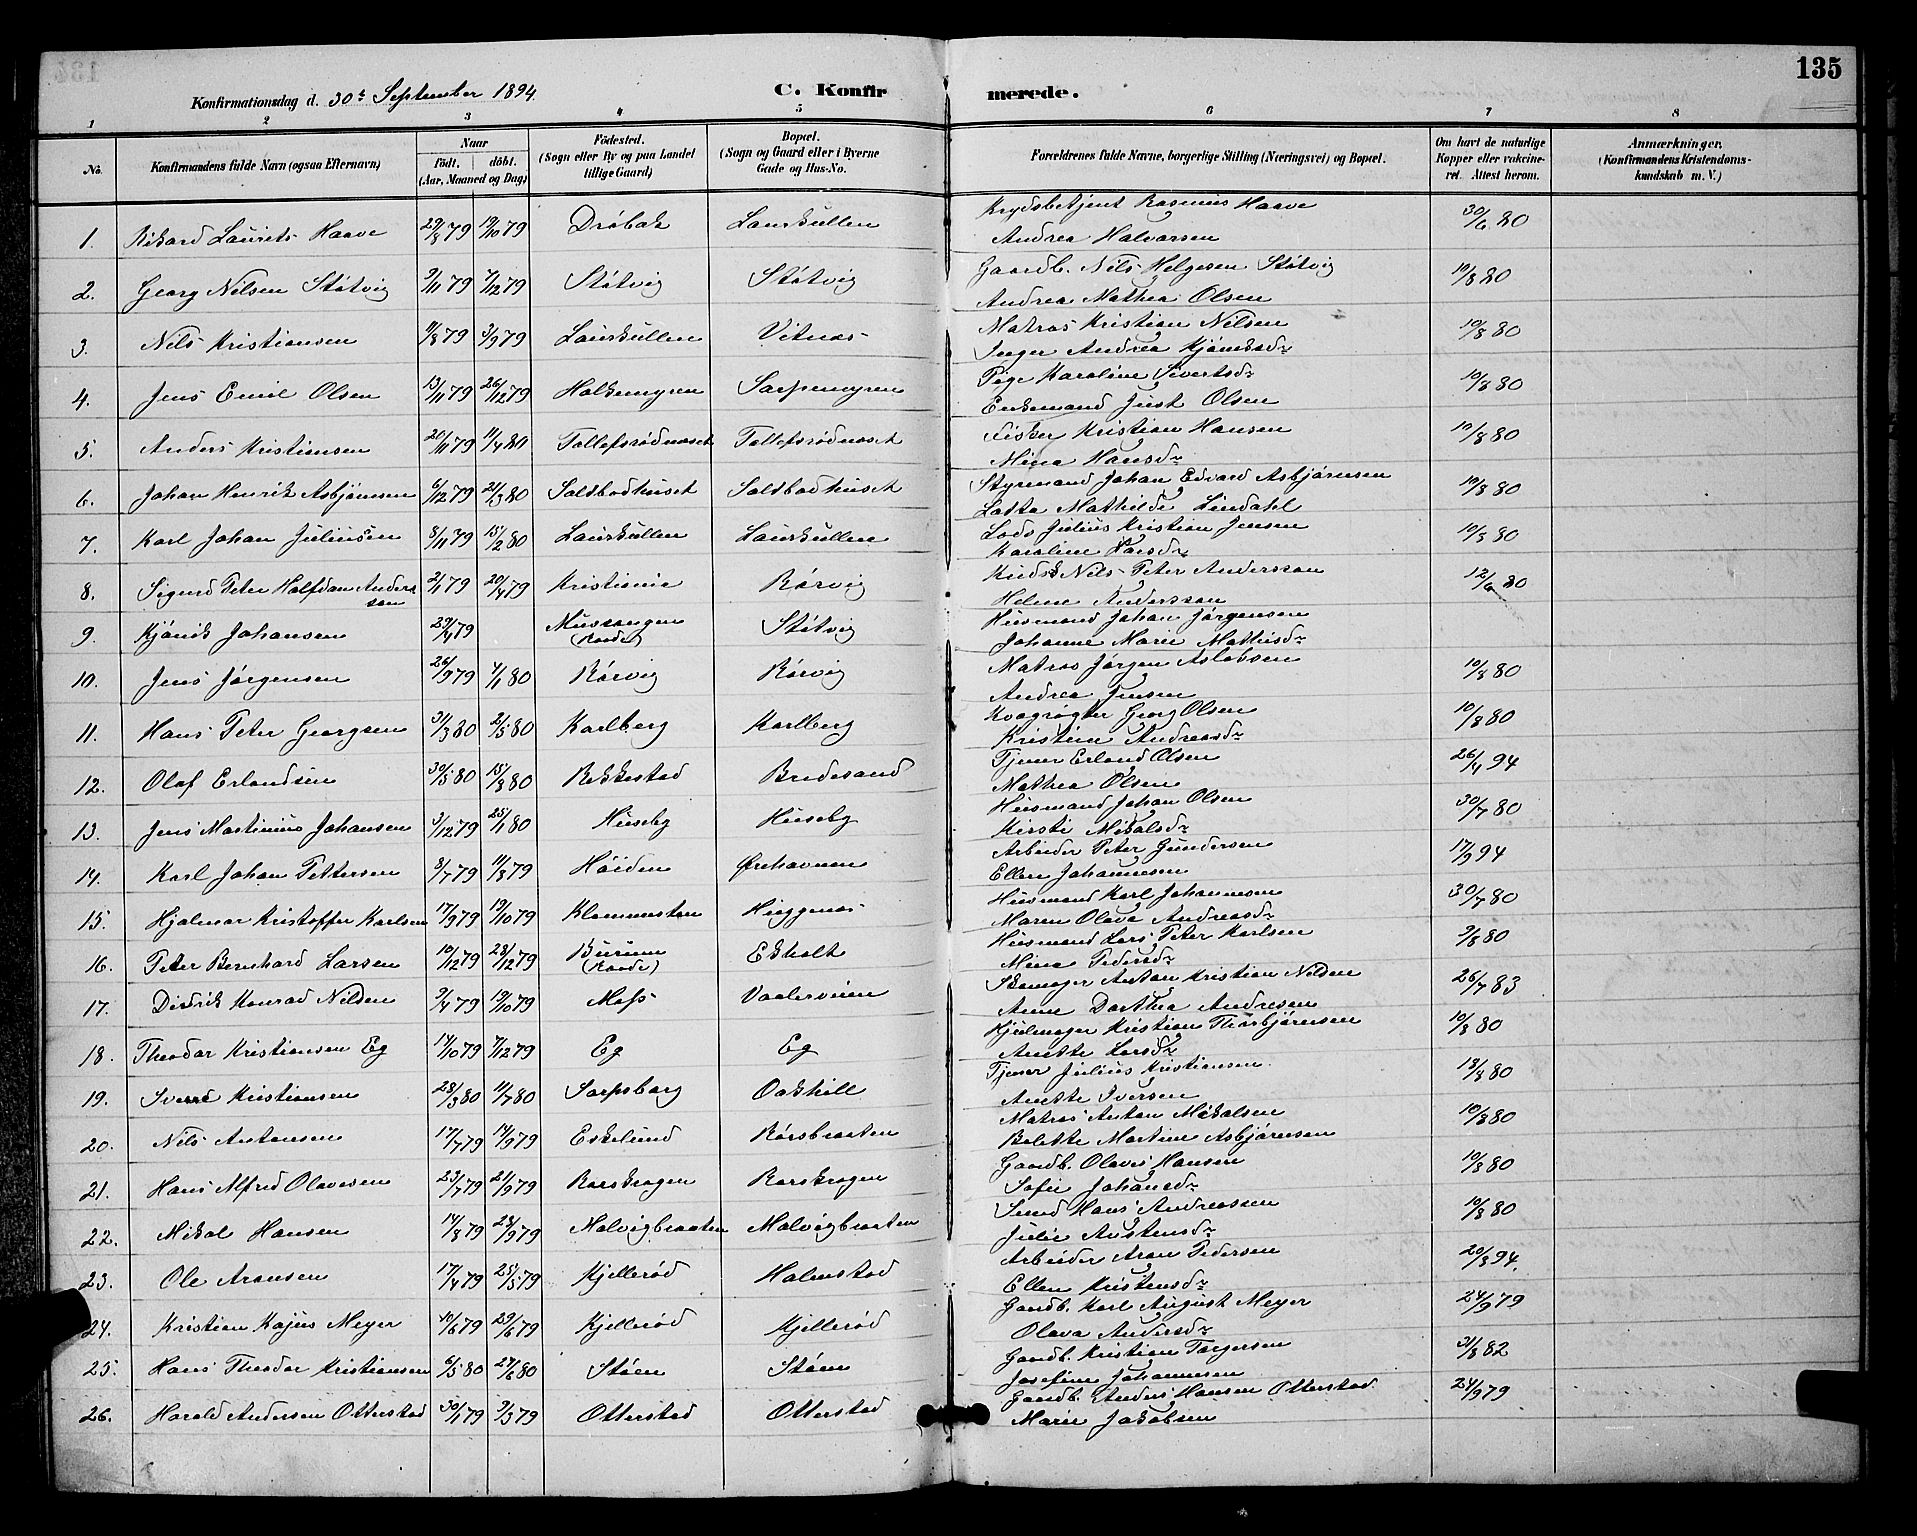 135
Konfirmationsdag d. 30t September 1894.
C. Konfirmerede.
1 2 3 4 5 6 7 8
No. Konfirmandens fulde Navn (ogsaa Efternavn) Naar födt. döbt. (Aar, Maaned og Dag) Födested. (Sogn eller By og paa Landet tillige Gaard) Bopæl. (Sogn og Gaard eller i Byerne Gade og Hus-No. Forældrenes fulde Navne, borgerlige Stilling (Næringsvei) og Bopæl. Om havt de naturlige Kopper eller vakcineret. Attest herom. Anmærkninger. (Konfirmandens Kristendomskundskab m. V.)
1. Rikard Laurits Haave 29/8 79 19/10 79 Drøbak Laurkullen Krydsbetjent Rasmus Haave 30/6 80
Andrea Halvorsen
2. Georg Nilsen Støtvig 9/11 79 7/12 79 Støtvig Støtvig Gaardb. Nils Helgesen Støtvig 10/8 80
Andrea Mathea Olsen
3. Nils Kristiansen 11/8 79 3/9 79 Laurkullen Vitnæs Matros Kristian Nilsen 10/8 80
Inger Andrea
4. Jens Emil Olsen 13/11 79 26/12 79 Holkemyren Sarpemyren Pige Karoline Sivertsdr 10/8 80
Enkemand Just Olsen
5. Anders Kristiansen 20/11 79 11/4 80 Tollefsrødnæset Tollefsrødnæset Fisker Kristian Hansen 10/8 80
Mina Hansdr
6. Johan Henrik Asbjørnsen 6/12 79 21/3 80 Saltbodhuset Saltbodhuset Styrmand Johan Edvard Asbjørnsen 10/8 80
Lotta Mathilde Lindahl
7. Karl Johan Juliussen 8/11 79 15/2 80 Laurkullen Laurkullen Lods Julius Kristian Jensen 10/8 80
Karoline Larsdr
8. Sigurd Peter Halfdan Andersson 2/1 79 20/4 79 Kristiania Rørvig Kudsk Nils Peter Andersson 12/6 80
Helene Andersson
9. Kjønik Johansen 29/4 79 Mussangen (Raade) Støtvig Husmand Johan Jørgensen
Johanne Marie Mathisdr
10. Jens Jørgensen 26/9 79 4/1 80 Rørvig Rørvig Matros Jørgen Aslaksen 10/8 80
Andrea Jensen
11. Hans Peter Georgsen 31/3 80 2/5 80 Karlberg Karlberg Kvægrøgter Georg Olsen 10/8 80
Kristine Andreasdr
12. Olaf Erlandsen 30/5 80 15/8 80 Rekkestad Bredesand Tjener Erland Olsen 26/4 94
Mathea Olsen
13. Jens Martinius Johansen 3/12 79 25/1 80 Huseby Huseby Husmand Johan Olsen 30/7 80
Kirsti Mikalsdr
14. Karl Johan Pettersen 8/7 79 11/8 79 Høiden Ørehavnen Arbeider Peter Gundersen 17/9 94
Ellen Johannesen
15. Hjalmar Kristoffer Karlsen 17/9 79 19/10 79 Klommesten Huggenæs Husmand Karl Johannesen 30/7 80
Maren Olava Andreasdr
16. Peter Bernhard Larsen 10/12 79 28/12 79 Burum (Raade) Ekholt Husmand Lars Peter Karlsen 9/8 80
Mina Pedersdr
17. Didrik Konrad Nilden 9/4 79 19/10 79 Moss Vaalerveien Skomager Anton Kristian Nilden 26/7 83
Anne Dorthea Andresen
18. Theodor Kristiansen Eg 14/10 79 7/12 79 Eg Eg Hjulmager Kristian Thorbjørnsen 10/8 80
Anette Larsdr
19. Sverre Kristiansen 28/3 80 11/7 80 Sarpsborg Oakhill Tjener Julius Kristiansen 13/8 80
Anette Iversen
20. Nils Antonsen 17/7 79 14/9 79 Eskelund Rørsbraaten Matros Anton Mikalsen 10/8 80
Bolette Martine Asbjørnsen
21. Hans Alfred Olavesen 23/7 79 21/9 79 Rørskogen Rørskogen Gaardb. Olaves Hansen 10/8 80
Sofie Johansdr
22. Mikal Hansen 14/8 79 28/9 79 Malvigbraaten Malvigbraaten Smed Hans Andreassen 10/8 80
Julie Austensdr
23. Ole Aronsen 17/4 79 25/5 79 Kjellerød Holmstad Arbeider Aron Pedersen 20/8 94.
Ellen Kristensdr
24. Kristian Kajus Meyer 10/6 79 29/6 79 Kjellerød Kjellerød Gaardb. Karl August Meyer 24/9 79
Olava Andersdr
25. Hans Theodor Kristiansen 6/5 80 27/6 80 Støen Støen Gaardb. Kristian Torgersen 31/8 82
Josefine Johannesen
26. Harald Andersen Otterstad 30/1 79 9/3 79 Otterstad Otterstad Gaardb. Anders Hansen Otterstad 24/9 79
Marie Jakobsen